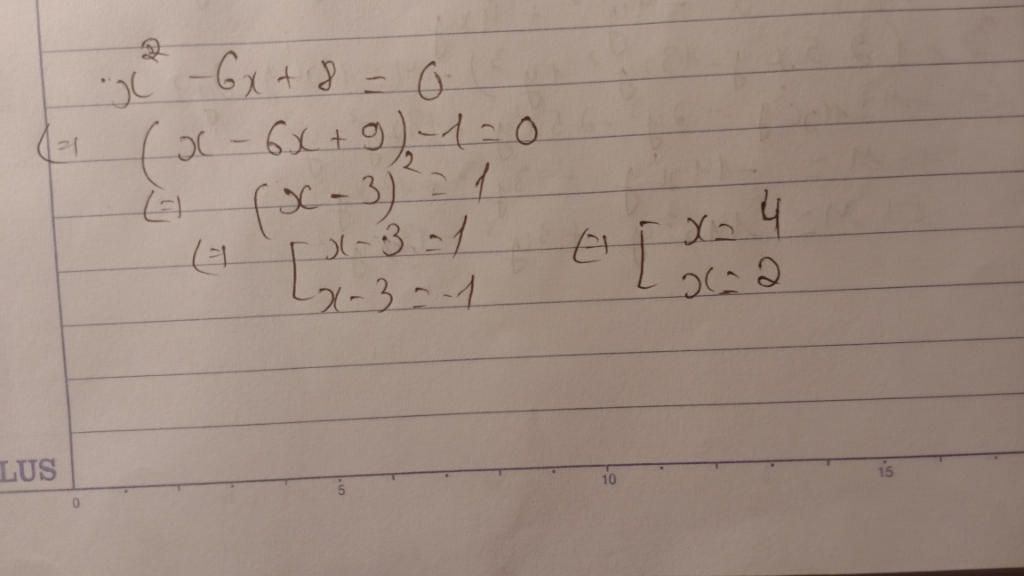 x² - 6x + 8 = 0
⇔ (x - 6x + 9) - 1 = 0
⇔ (x - 3)² = 1
⇔ [ x - 3 = 1 ⇔ [ x = 4
x - 3 = -1 x = 2
LUS
0 5 10 15